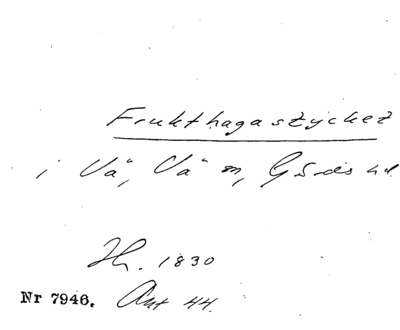 Frukthagastycket
i Vä, Vä sn, Gärds hd
Hr. 1830
Nr 7946. Ant 44.